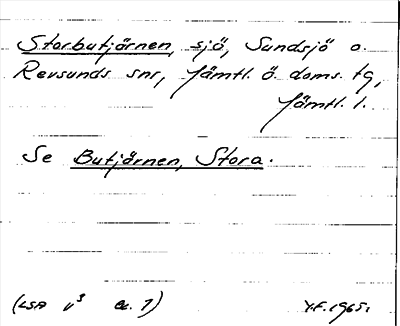 Storbutjärnen, sjö, Sundsjö o.
Revsunds snr, Jämtl. ö. doms. tg,
Jämtl. l.
Se Butjärnen, Stora.
(LSA V³ a. 1) Y.F. 1965.